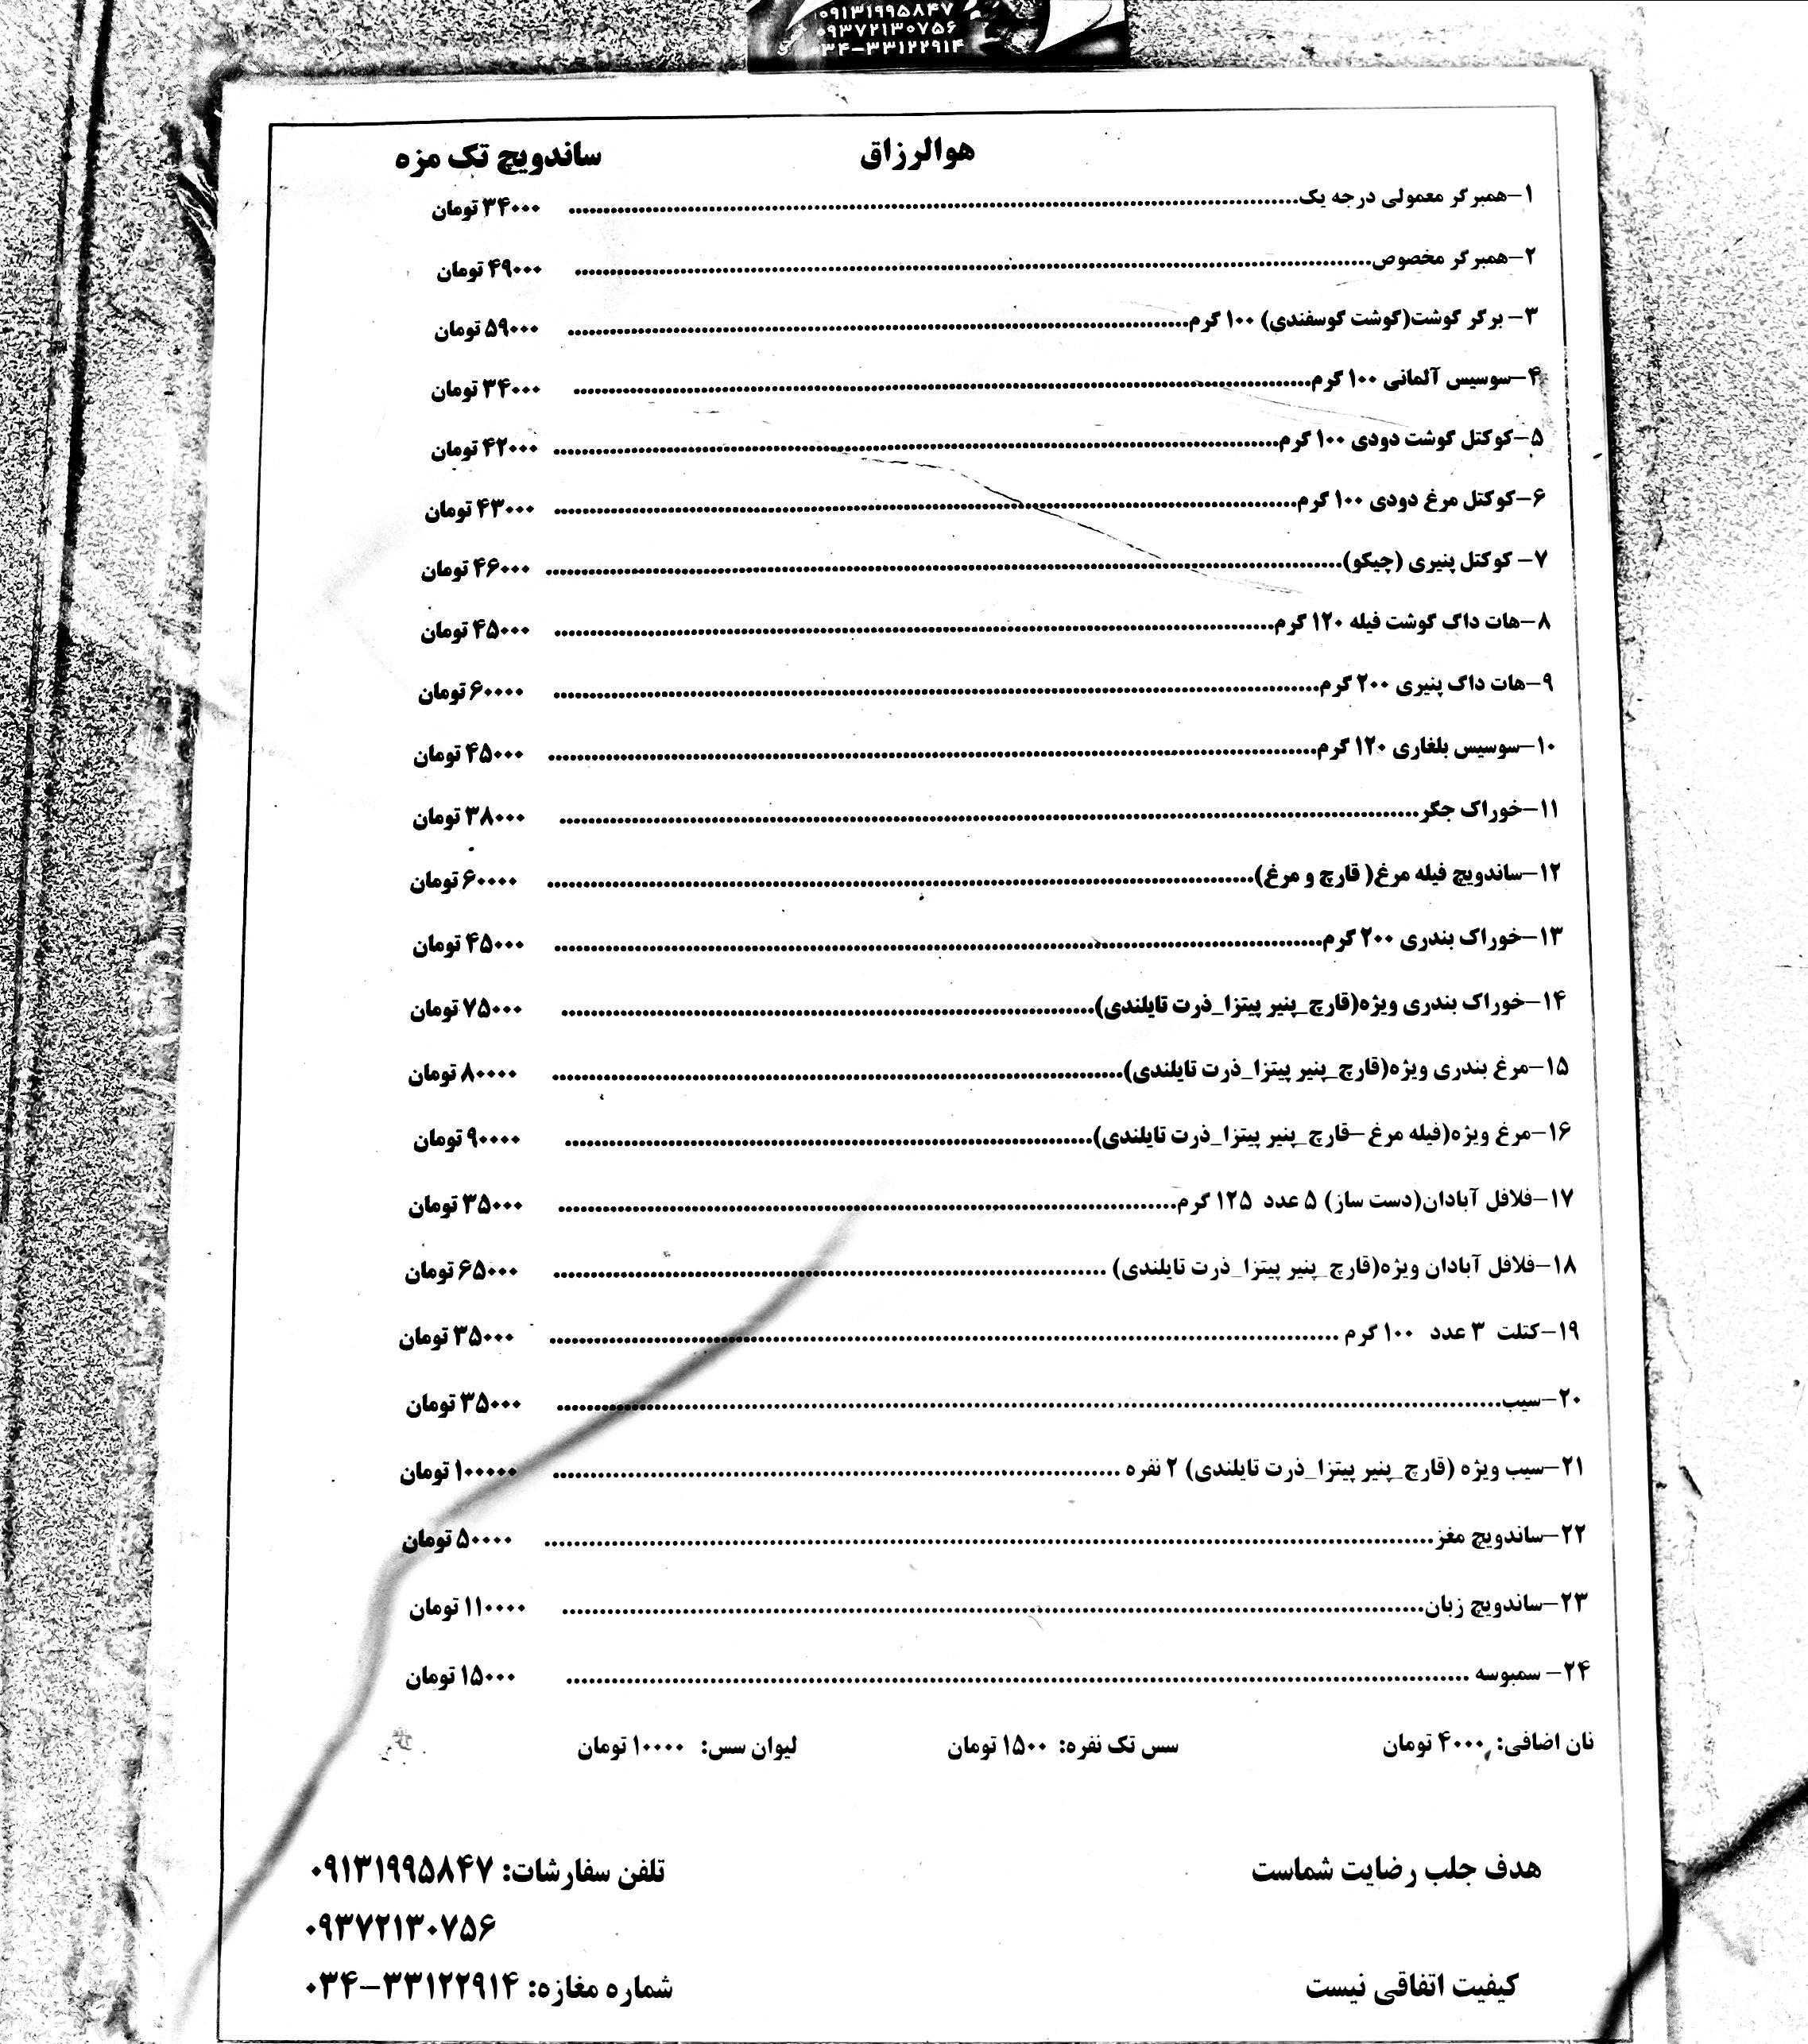 ۰۹۱۳۱۹۹۵۸۴۷
۰۹۳۷۲۱۳۰۷۵۶
۰۳۴-۳۳۱۲۲۹۱۴
هوالرزاق ساندویچ تک مزه
۱-همبرگر معمولی درجه یک........................ ۳۴۰۰۰ تومان
۲-همبرگر مخصوص........................ ۴۹۰۰۰ تومان
۳- برگر گوشت(گوشت گوسفندی) ۱۰۰ گرم........................ ۵۹۰۰۰ تومان
۴-سوسیس آلمانی ۱۰۰ گرم........................ ۳۴۰۰۰ تومان
۵-کوکتل گوشت دودی ۱۰۰ گرم........................ ۴۲۰۰۰ تومان
۶-کوکتل مرغ دودی ۱۰۰ گرم........................ ۴۳۰۰۰ تومان
۷- کوکتل پنیری (چیکو)........................ ۴۶۰۰۰ تومان
۸-هات داگ گوشت فیله ۱۲۰ گرم........................ ۴۵۰۰۰ تومان
۹-هات داگ پنیری ۲۰۰ گرم........................ ۶۰۰۰۰ تومان
۱۰-سوسیس بلغاری ۱۲۰ گرم........................ ۴۵۰۰۰ تومان
۱۱-خوراک جگر........................ ۳۸۰۰۰ تومان
۱۲-ساندویچ فیله مرغ( قارچ و مرغ)........................ ۶۰۰۰۰ تومان
۱۳-خوراک بندری ۲۰۰ گرم........................ ۴۵۰۰۰ تومان
۱۴-خوراک بندری ویژه(قارچ_پنیر پیتزا_ذرت تایلندی)........................ ۷۵۰۰۰ تومان
۱۵-مرغ بندری ویژه(قارچ_پنیر پیتزا_ذرت تایلندی)........................ ۸۰۰۰۰ تومان
۱۶-مرغ ویژه(فیله مرغ -قارچ_پنیر پیتزا_ذرت تایلندی)........................ ۹۰۰۰۰ تومان
۱۷-فلافل آبادان(دست ساز) ۵ عدد ۱۲۵ گرم........................ ۳۵۰۰۰ تومان
۱۸-فلافل آبادان ویژه(قارچ_پنیر پیتزا_ذرت تایلندی) ........................ ۶۵۰۰۰ تومان
۱۹-کتلت ۳ عدد ۱۰۰ گرم ........................ ۳۵۰۰۰ تومان
۲۰-سیب........................ ۳۵۰۰۰ تومان
۲۱-سیب ویژه (قارچ_پنیر پیتزا_ذرت تایلندی) ۲ نفره ........................ ۱۰۰۰۰۰ تومان
۲۲-ساندویچ مغز........................ ۵۰۰۰۰ تومان
۲۳-ساندویچ زبان........................ ۱۱۰۰۰۰ تومان
۲۴- سمبوسه ........................ ۱۵۰۰۰ تومان
نان اضافی: ۴۰۰۰ تومان سس تک نفره: ۱۵۰۰ تومان لیوان سس: ۱۰۰۰۰ تومان
هدف جلب رضایت شماست تلفن سفارشات: ۰۹۱۳۱۹۹۵۸۴۷
۰۹۳۷۲۱۳۰۷۵۶
کیفیت اتفاقی نیست شماره مغازه: ۰۳۴-۳۳۱۲۲۹۱۴